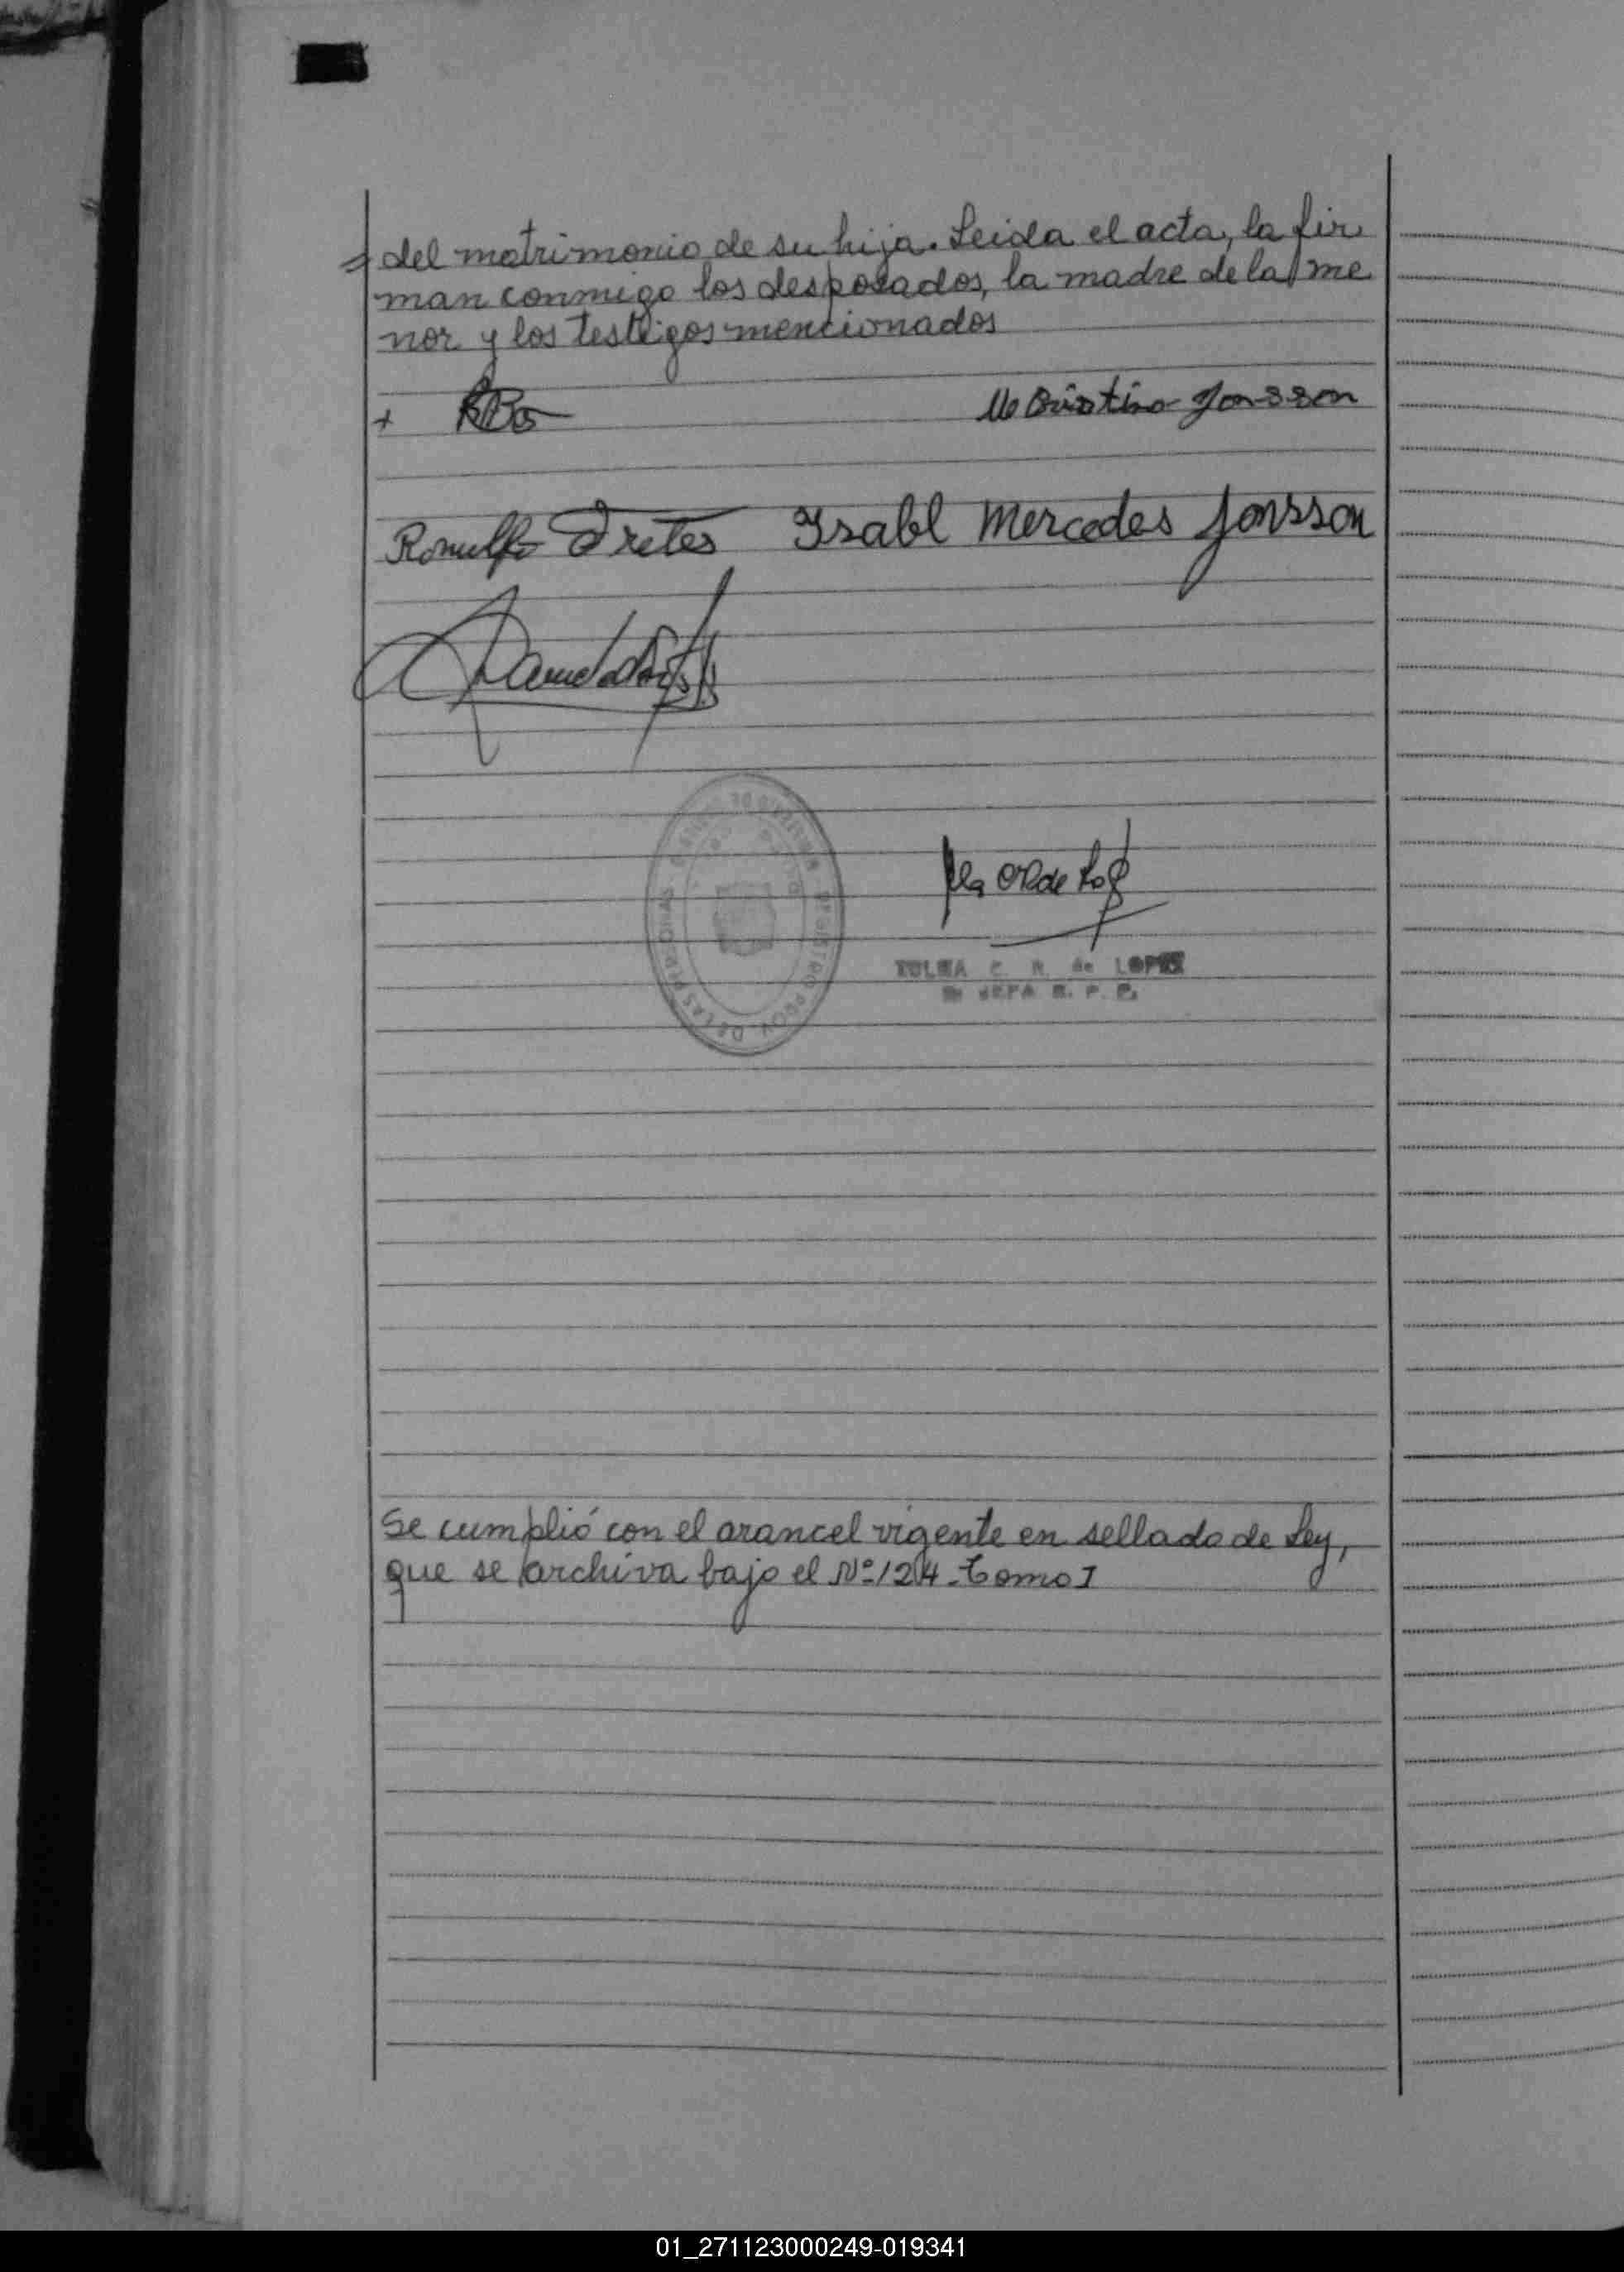 del matrimonio de su hija. Leida el acta, la fir
man conmigo los desposados, la madre de la me
nor y los testigos mencionados
Cristina Jonsson
Isabl Mercedes Jonsson
C. R. de LOPEZ
JEFA R. P. P.
REGISTRO PROV. DE LAS PERSONAS
Se cumplió con el arancel vigente en sellado de Ley,
que se archiva bajo el Nº 124 - Tomo I
01_271123000249-019341